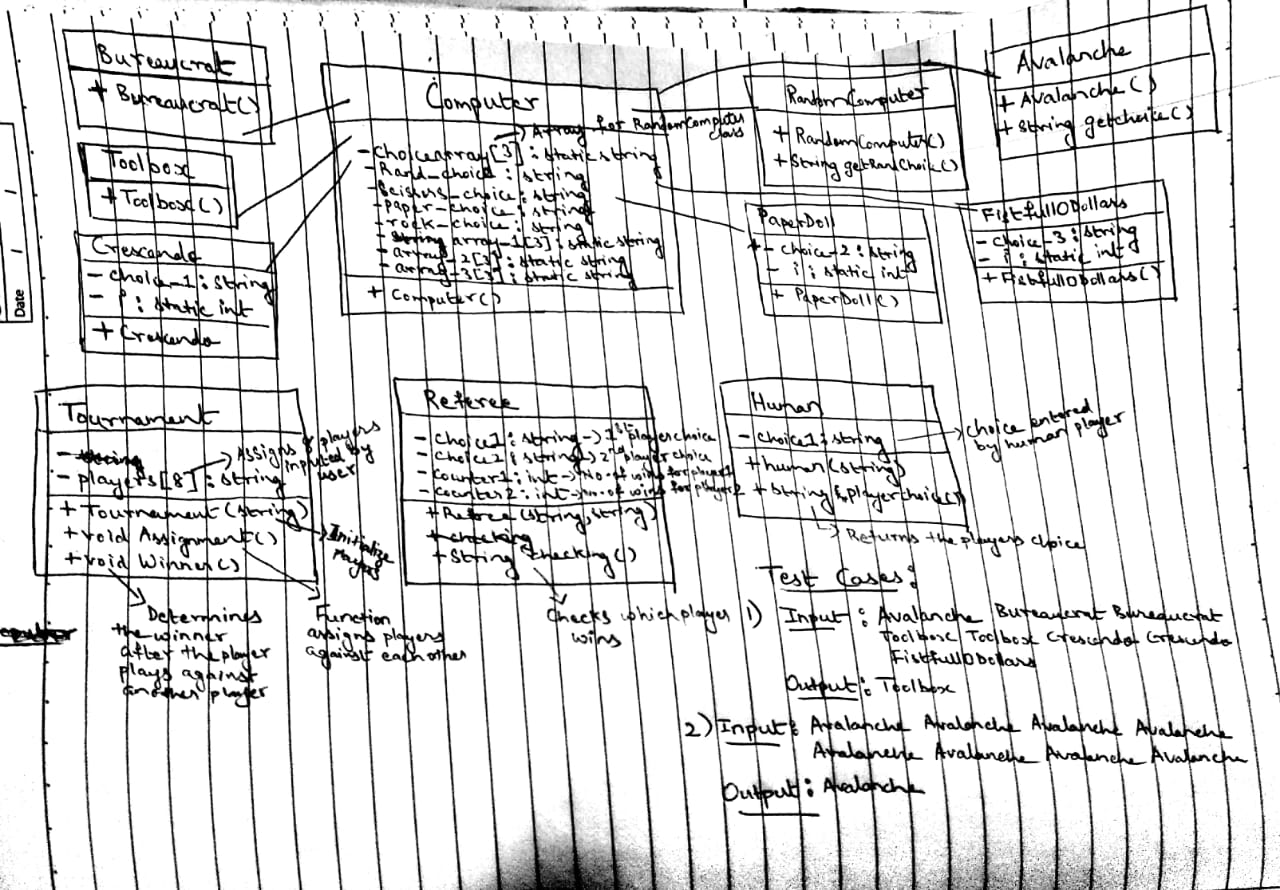 Bureaucrat
+ Bureaucrat()
Toolbox
+ Toolbox()
Crescendo
- choice_1 : string
- i : static int
+ Crescendo
Computer
Array for RandomComputer
class
- choicearray[3] : static string
- Rand_choice : string
- Scissors_choice : string
- paper_choice : string
- rock_choice : string
- array_1[3] : static string
- array_2[3] : static string
- array_3[3] : static string
+ Computer()
RandomComputer
+ RandomComputer()
+ String getRandChoice()
Avalanche
+ Avalanche()
+ String getchoice()
PaperDoll
- choice_2 : string
- i : static int
+ PaperDoll()
FistfullODollars
- choice_3 : string
- i : static int
+ FistfullODollars()
Tournament
- string
- players[8] : string
+ Tournament(string)
+ void Assignment()
+ void Winner()
Assigns 8 players
inputed by
user
Initialize
Determines
the winner
after the player
plays against
another player
Function
assigns players
against each other
Referee
- Choice1 : string -> 1st player choice
- Choice2 : string -> 2nd player choice
- counter1 : int -> No. of wins for player1
- counter2 : int -> No. of wins for player2
+ Referee(string, string)
+ checking
+ String checking()
Checks which player
wins
Human
- choice1 : string
+ human(string)
+ String playerchoice()
choice entered
by human player
Returns the players choice
Test Cases :
1) Input : Avalanche Bureaucrat Bureaucrat
Toolbox Toolbox Crescendo Crescendo
FistfullODollars
Output : Toolbox
2) Input : Avalanche Avalanche Avalanche Avalanche
Avalanche Avalanche Avalanche Avalanche
Output : Avalanche
Date